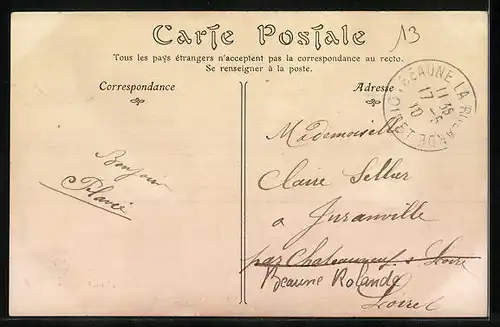 Carte Postale
13
Tous les pays étrangers n'acceptent pas la correspondance au recto.
Se renseigner à la poste.
Correspondance
Adresse
BEAUNE LA ROLANDE LOIRET
11 35
17 -6
10
Bonjour
Mademoiselle
Claire Sellier
a Juranville
par Chateauneuf s Loire
Beaune Rolande
Loiret